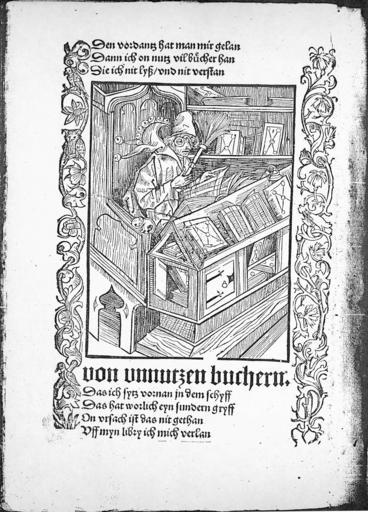 Den vordantz hat man mir gelan
Dann ich on nutz vil bůcher han
Die ich nit lyß/vnd nit verstan
von vnnutzen buchern.
Das ich sytz vornan jn dem schyff
Das hat worlich eyn sundern gryff
On vrsach ist das nit gethan
Vff myn libry ich mich verlan